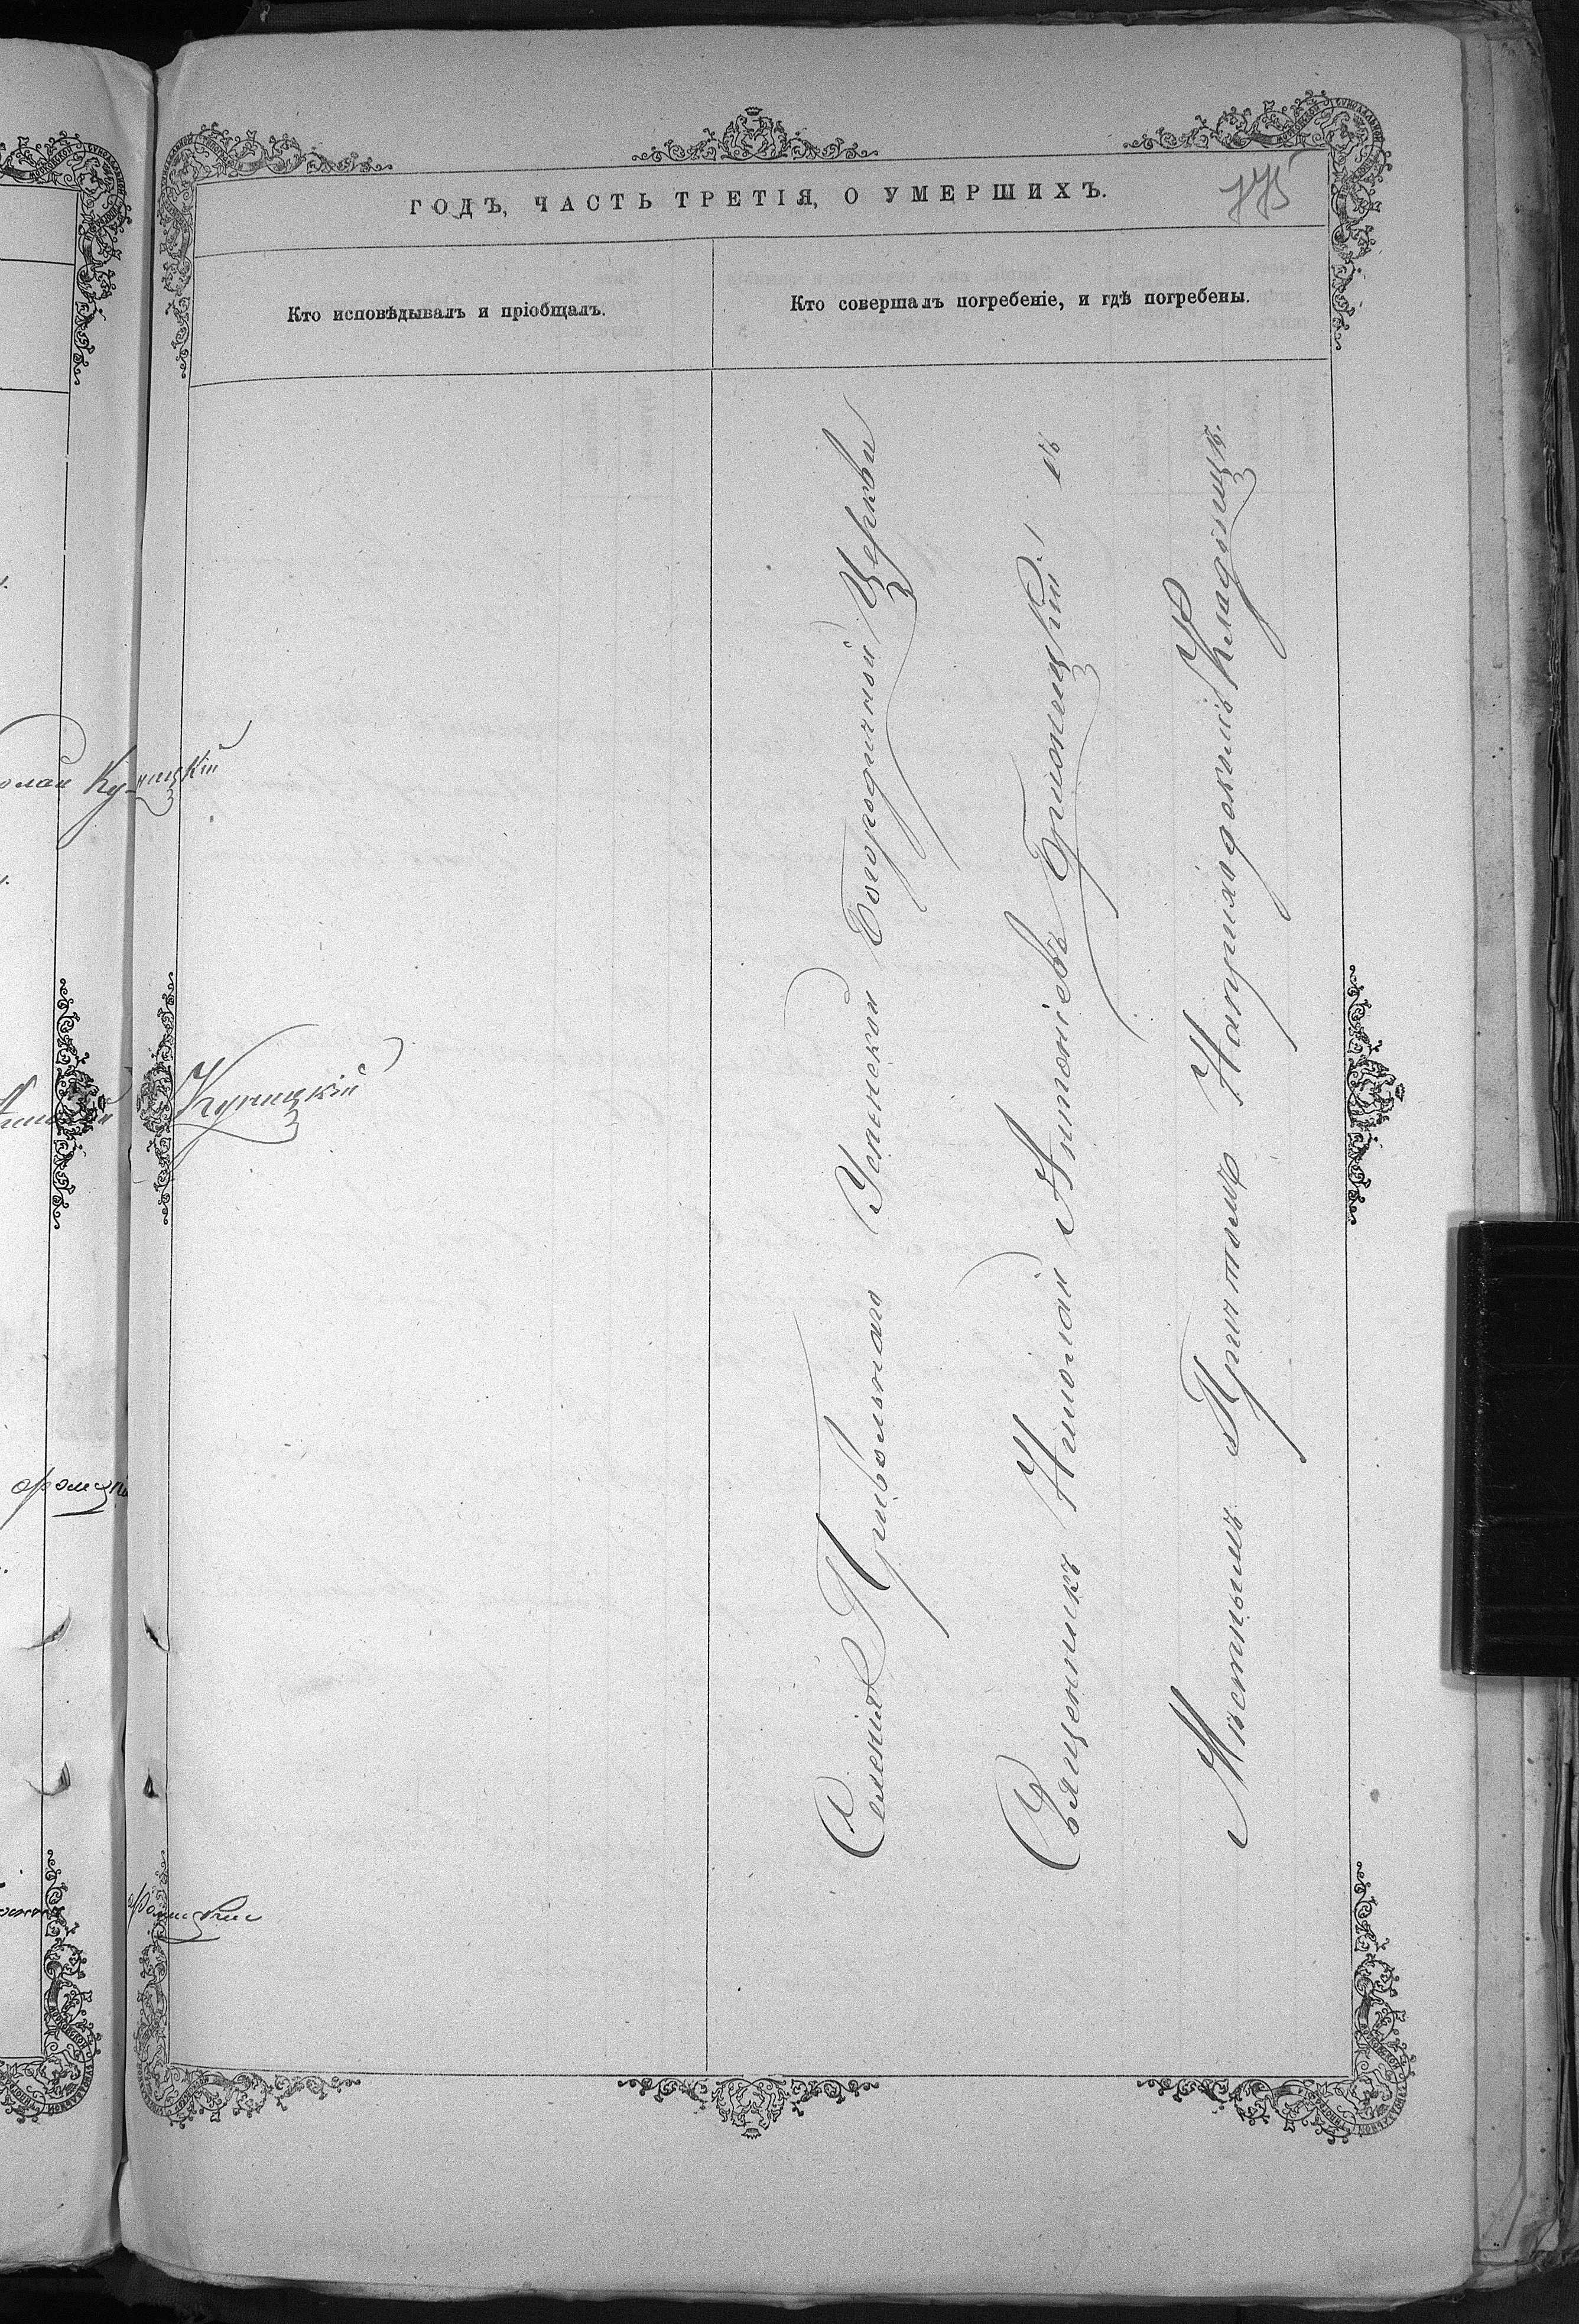 ГОДЪ, ЧАСТЬ ТРЕТІЯ, О УМЕРШИХЪ.
775
Кто исповѣдывалъ и пріобщалъ.
Кто совершалъ погребеніе, и гдѣ погребены.
Куницкій
Куницкій
Селенія Привольнаго Успенской Богородичной Церкви
Священникъ Николай Антоніевъ Базилицкій съ
Мѣстнымъ Причтомъ На приходскомъ Кладбищѣ.